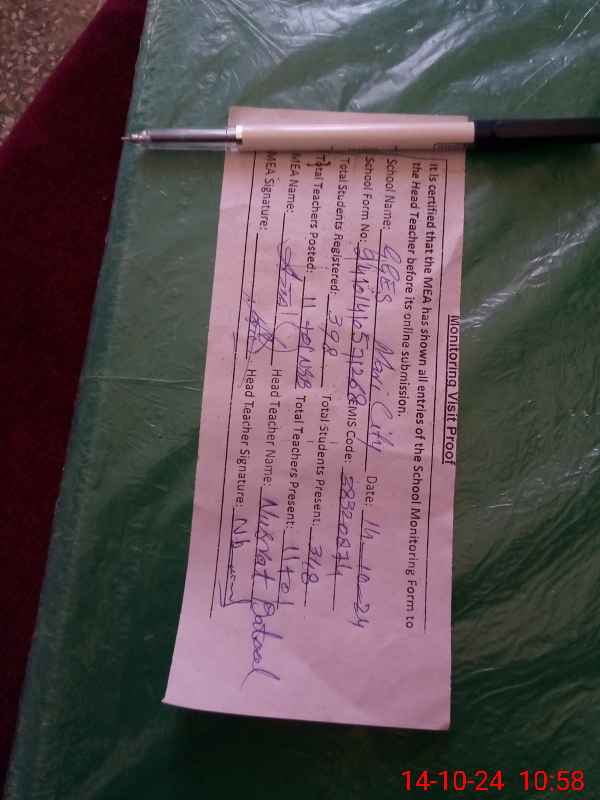 Monitoring Visit Proof
It is certified that the MEA has shown all entries of the School Monitoring Form to
the Head Teacher before its online submission.
School Name: GGES Mari City Date: 14-10-24
School Form No: EMIS Code: 38320274
Total Students Registered: 398 Total Students Present: 348
Total Teachers Posted: 11 + Total Teachers Present: 11+01
MEA Name: Head Teacher Name: Nusrat Batool
MEA Signature: Head Teacher Signature:
14-10-24 10:58